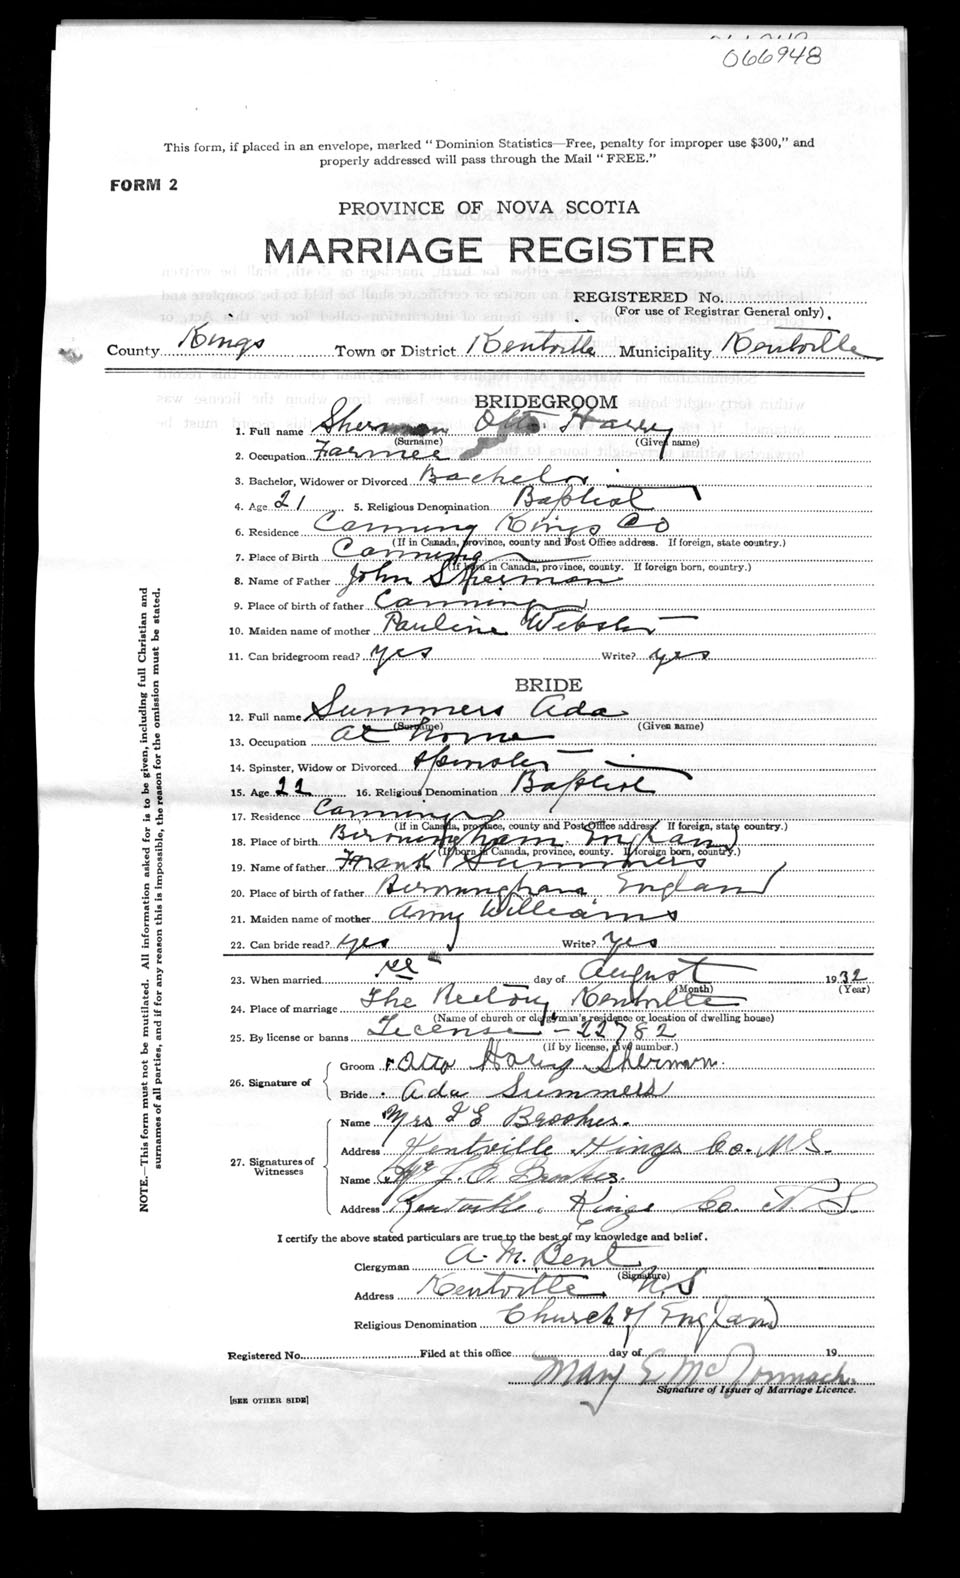 066948
This form, if placed in an envelope, marked "Dominion Statistics—Free, penalty for improper use $300," and
properly addressed will pass through the Mail "FREE."
FORM 2
PROVINCE OF NOVA SCOTIA
MARRIAGE REGISTER
REGISTERED No.
(For use of Registrar General only)
County Kings Town or District Kentville Municipality Kentville
BRIDEGROOM
1. Full name Sherman Otto Harry
(Surname) (Given name)
2. Occupation Farmer
3. Bachelor, Widower or Divorced Bachelor
4. Age 21 5. Religious Denomination Baptist
6. Residence Canning Kings Co
(If in Canada, province, county and Post Office address. If foreign, state country.)
7. Place of Birth Canning
(If born in Canada, province, county. If foreign born, country.)
8. Name of Father John Sherman
9. Place of birth of father Canning
10. Maiden name of mother Pauline Webster
11. Can bridegroom read? yes Write? yes
BRIDE
12. Full name Summers Ada
(Surname) (Given name)
13. Occupation At home
14. Spinster, Widow or Divorced Spinster
15. Age 22 16. Religious Denomination Baptist
17. Residence Canning
(If in Canada, province, county and Post Office address. If foreign, state country.)
18. Place of birth Birmingham England
(If born in Canada, province, county. If foreign born, country.)
19. Name of father Frank Summers
20. Place of birth of father Birmingham England
21. Maiden name of mother Amy Williams
22. Can bride read? yes Write? yes
23. When married day of August 1932
(Month) (Year)
24. Place of marriage The Rectory Kentville
(Name of church or clergyman's residence or location of dwelling house)
25. By license or banns License - 22782
(If by license, give number.)
26. Signature of Groom Otto Harry Sherman.
Bride Ada Summers
27. Signatures of Witnesses
Name Mrs J E Brookes.
Address Kentville Kings Co. N.S.
Name J. E. Brookes.
Address Kentville, Kings Co. N.S.
I certify the above stated particulars are true to the best of my knowledge and belief.
Clergyman A. M. Bent
(Signature)
Address Kentville N.S
Religious Denomination Church of England
Registered No. Filed at this office day of 19
Mary E McCormack
Signature of Issuer of Marriage Licence.
[SEE OTHER SIDE]
NOTE.—This form must not be mutilated. All information asked for is to be given, including full Christian and
surnames of all parties, and if for any reason this is impossible, the reason for the omission must be stated.